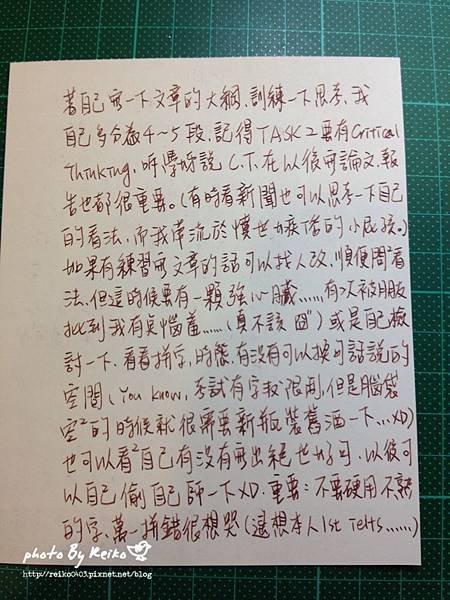 著自己寫一下文章的大綱,訓練一下思考,我
自己多分為4~5段,記得TASK 2要有Critical
Thinking,聽學姊說C.T.在以後寫論文,報
告也都很重要。(有時看新聞也可以思考一下自己
的看法,而我常流於憤世嫉俗的小屁孩。)
如果有練習寫文章的話可以找人改,順便問看看
法,但這時候要有一顆強心臟......有次被朋友
批到我有點惱羞......(真不該 囧") 或是自己檢
討一下,看看拼字,時態,有沒有可以換句話說的
空間(You know,考試有字數限制,但是腦袋
空空的時候就很需要新瓶裝舊酒一下...XD)
也可以看看自己有沒有寫出絕世好句,以後可
以自己偷自己師一下XD.重要:不要硬用不熟
的字,萬一拼錯很想哭(遙想本人1st Ielts......)
photo By Reiko
http://reiko0403.pixnet.net/blog